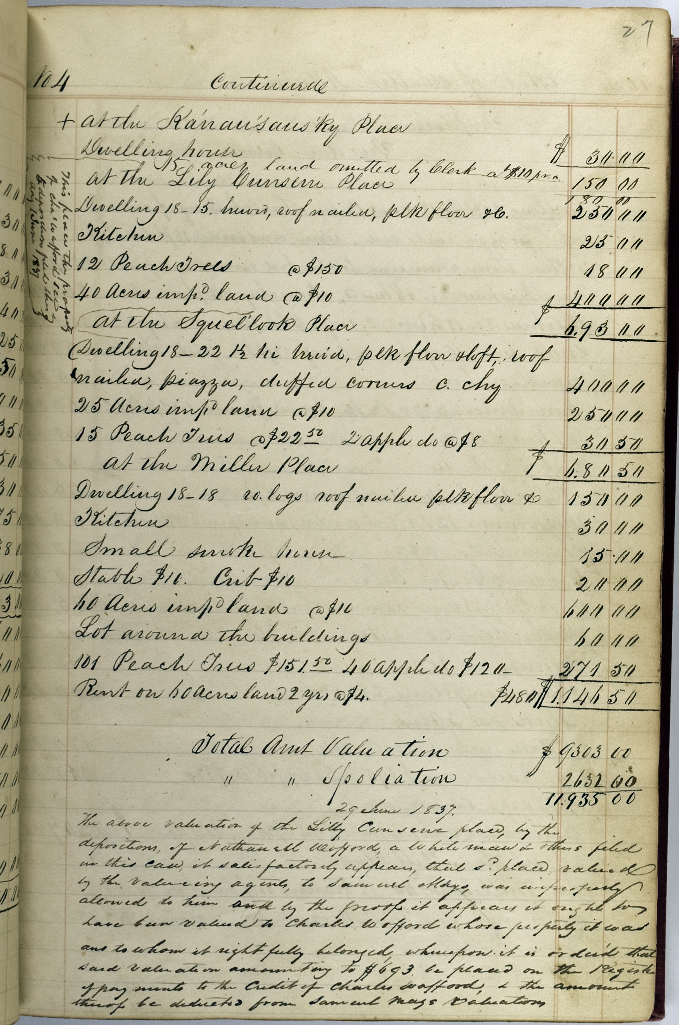 27
No 4 Continued
+ at the Kanau'saus'ky Place
Dwelling house $ 30.00
15 acres land omitted by Clerk at $10 pr a 150 00
at the Lily Cunsene Place 180 00
Dwelling 18-15 hewd, roof nailed, plk floor &c. 250 00
Kitchen 25 00
12 Peach Trees @ $150 18 00
40 Acres imp.d land @ $10 400 00
at the Squel'look Place $ 693 00
Dwelling 18-22 1½ hi hewd, plk floor & loft, roof
nailed, piazza, duffed corners c. chy 400 00
25 Acres imp.d land @ $10 250 00
15 Peach Trees @ $22 50 2 apple do @ $8 30 50
at the Miller Place $ 680 50
Dwelling 18-18 ro. logs roof nailed plk floor & 150 00
Kitchen 30 00
Small smoke house 15 00
Stable $10. Crib $10 20 00
60 Acres imp.d land @ $10 600 00
Lot around the buildings 60 00
101 Peach Trees $151.50 40 apple do $120 271 50
Rent on 60 Acres land 2 yrs @ $4. $480 1146 50
Total Amt Valuation $ 9303 00
" " Spoliation 2632 00
11.935 00
29 June 1837.
The above valuation of the Lilly Cunsena place, by the
depositions, of Nathan M Wofford, a White man & others filed
in this case it satisfactorily appears, that sd. place valued
by the valueing agents, to Samuel Mays, was improperly
allowed to him and by the proofs it appears it ought to
have been valued to Charles Wofford whose property it was
and to whom it rightfully belonged, whereupon it is ordered that
said valuation amounting to $693 be placed on the Register
of payments to the Credit of Charles Wofford, & the amount
thereof be deducted from Samuel Mays Valuations
This place the property